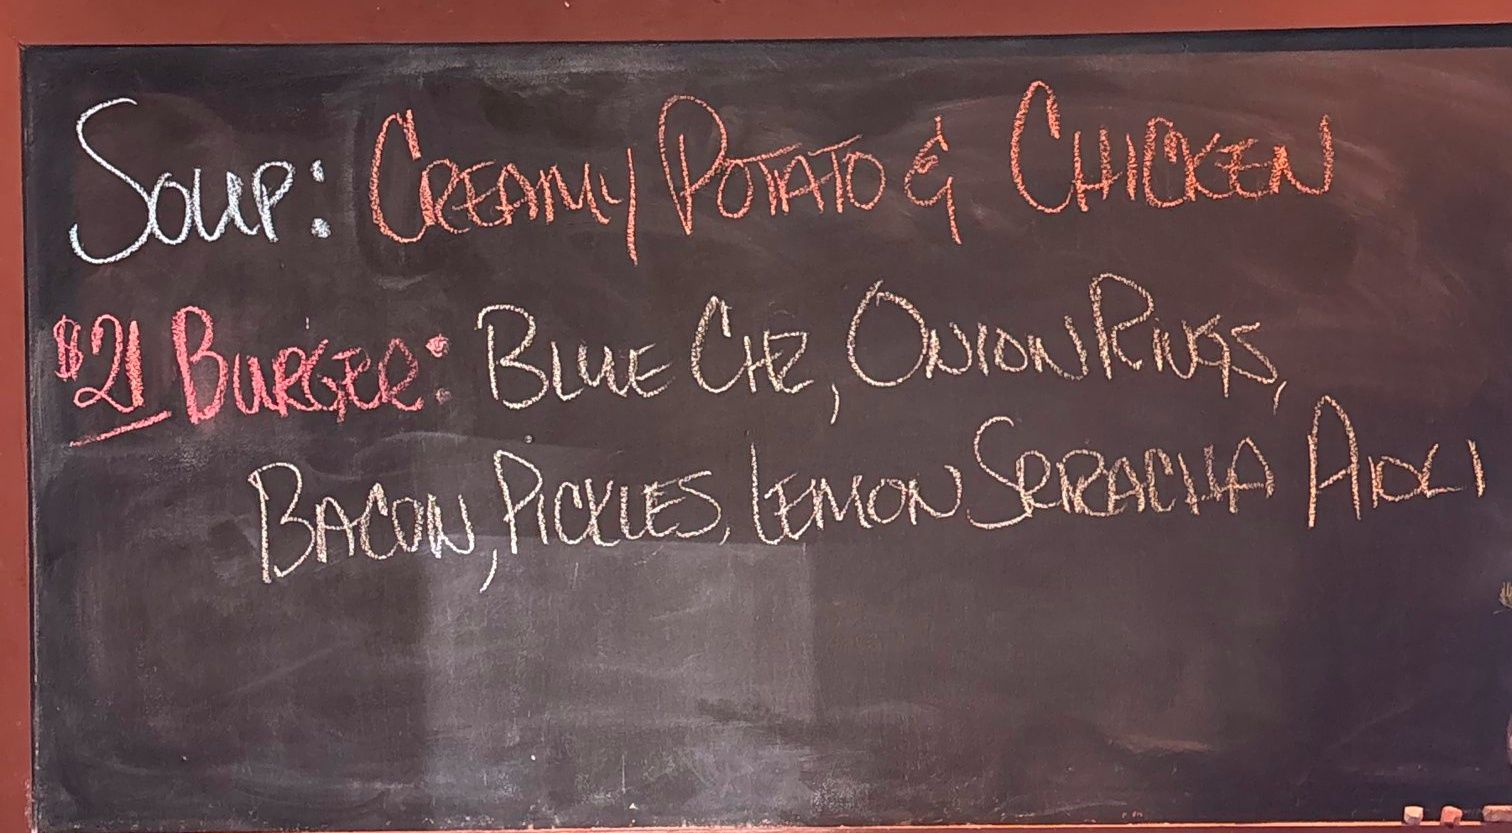 SOUP: CREAMY POTATO & CHICKEN
$21 BURGER: BLUE CHZ, ONION RINGS,
BACON, PICKLES, LEMON SRIRACHA AIOLI